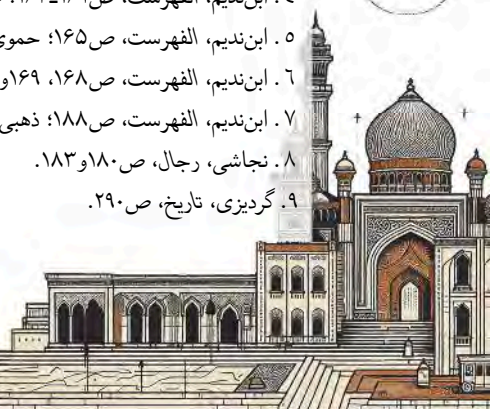 ۵. ابن‌ندیم، الفهرست، ص۱۶۵؛ حموی
۶. ابن‌ندیم، الفهرست، ص۱۶۸، ۱۶۹و
۷. ابن‌ندیم، الفهرست، ص۱۸۸؛ ذهبی
۸. نجاشی، رجال، ص۱۸۰و۱۸۳.
۹. گردیزی، تاریخ، ص۲۹۰.